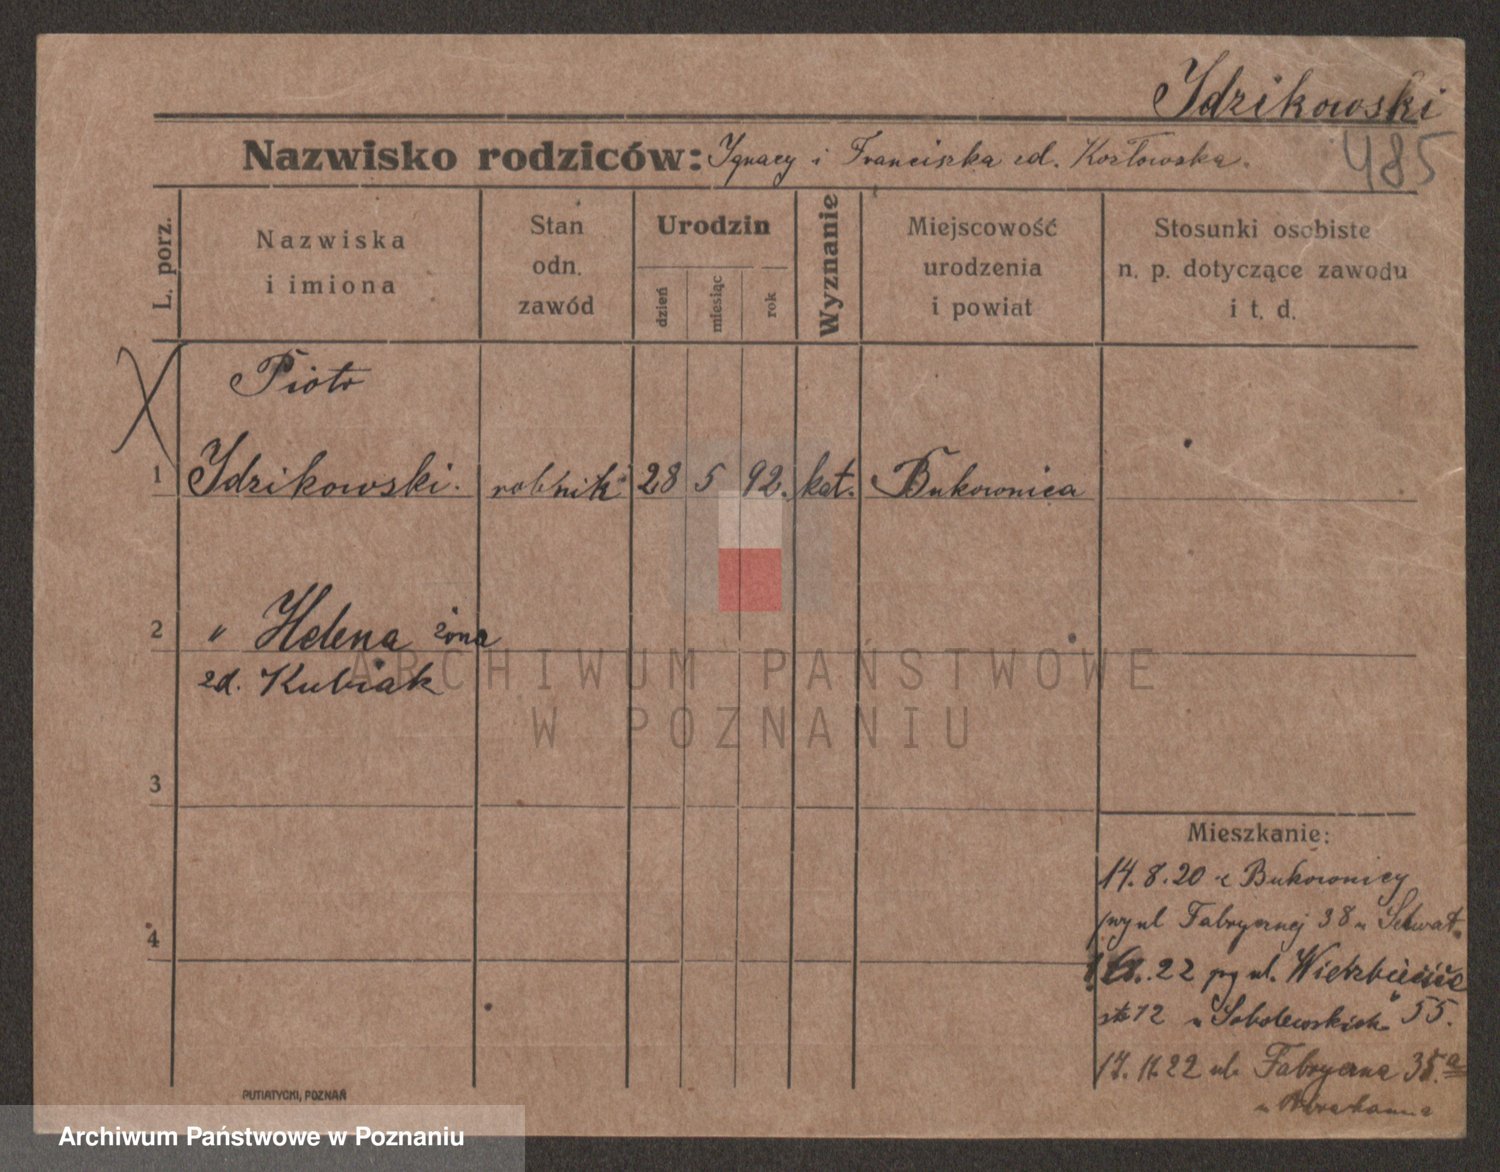 Idzikowski
485
Nazwisko rodziców: Ignacy i Franciszka zd. Kozłowska.
L. porz.
Nazwiska
i imiona
Stan
odn.
zawód
Urodzin
dzień
miesiąc
rok
Wyznanie
Miejscowość
urodzenia
i powiat
Stosunki osobiste
n. p. dotyczące zawodu
i t. d.
Piotr
1 Idzikowski. robtnik 28 5 92. kat. Bukownica
2 " Helena żona
zd. Kubiak
ARCHIWUM PAŃSTWOWE
W POZNANIU
3
Mieszkanie:
14.8.20 z Bukownicy
ul Fabrycznej 38 u
4
22 ul. Wierzbięcice
u Sobolewskich 55.
17.11.22 ul. Fabryczna a
u
PUTIATYCKI, POZNAŃ
Archiwum Państwowe w Poznaniu